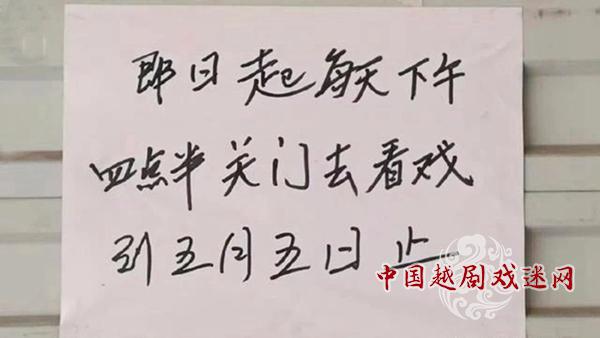 即日起每天下午
四点半关门去看戏
到五月五日止
中国越剧戏迷网